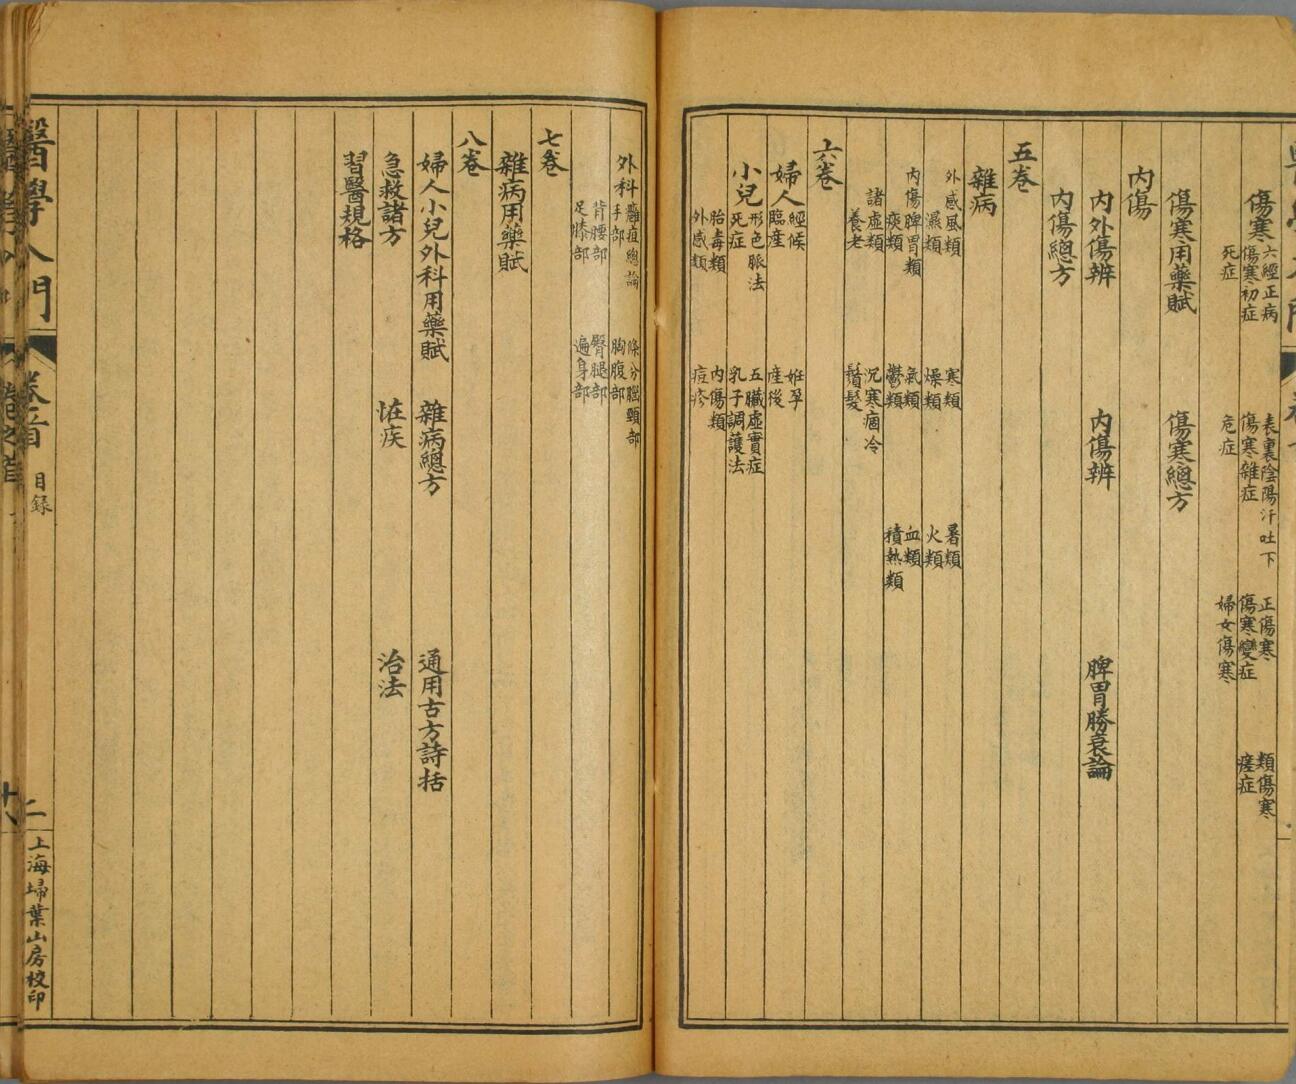 傷寒 六經正病 表裏陰陽汗吐下 正傷寒 類傷寒
傷寒初症 傷寒雜症 傷寒變症 瘥症
死症 危症 婦女傷寒
傷寒用藥賦 傷寒總方
內傷
內外傷辨 內傷辨 脾胃勝衰論
內傷總方
五卷
雜病
外感風類 寒類 暑類
濕類 燥類 火類
內傷脾胃類 氣類 血類
痰類 鬱類 積熱類
諸虛類 沉寒痼冷
養老 鬚髮
六卷
婦人 經候 姙孕
臨產 產後
小兒 形色脈法 五臟虛實症
死症 乳子調護法
胎毒類 內傷類
外感類 痘疹
外科 癰疽總論 條分腦頸部
手部 胸腹部
背腰部 臀腿部
足膝部 遍身部
七卷
雜病用藥賦
八卷
婦人小兒外科用藥賦 雜病總方 通用古方詩括
急救諸方 怪疾 治法
習醫規格
醫學入門 卷之首 目錄 二 上海埽葉山房校印